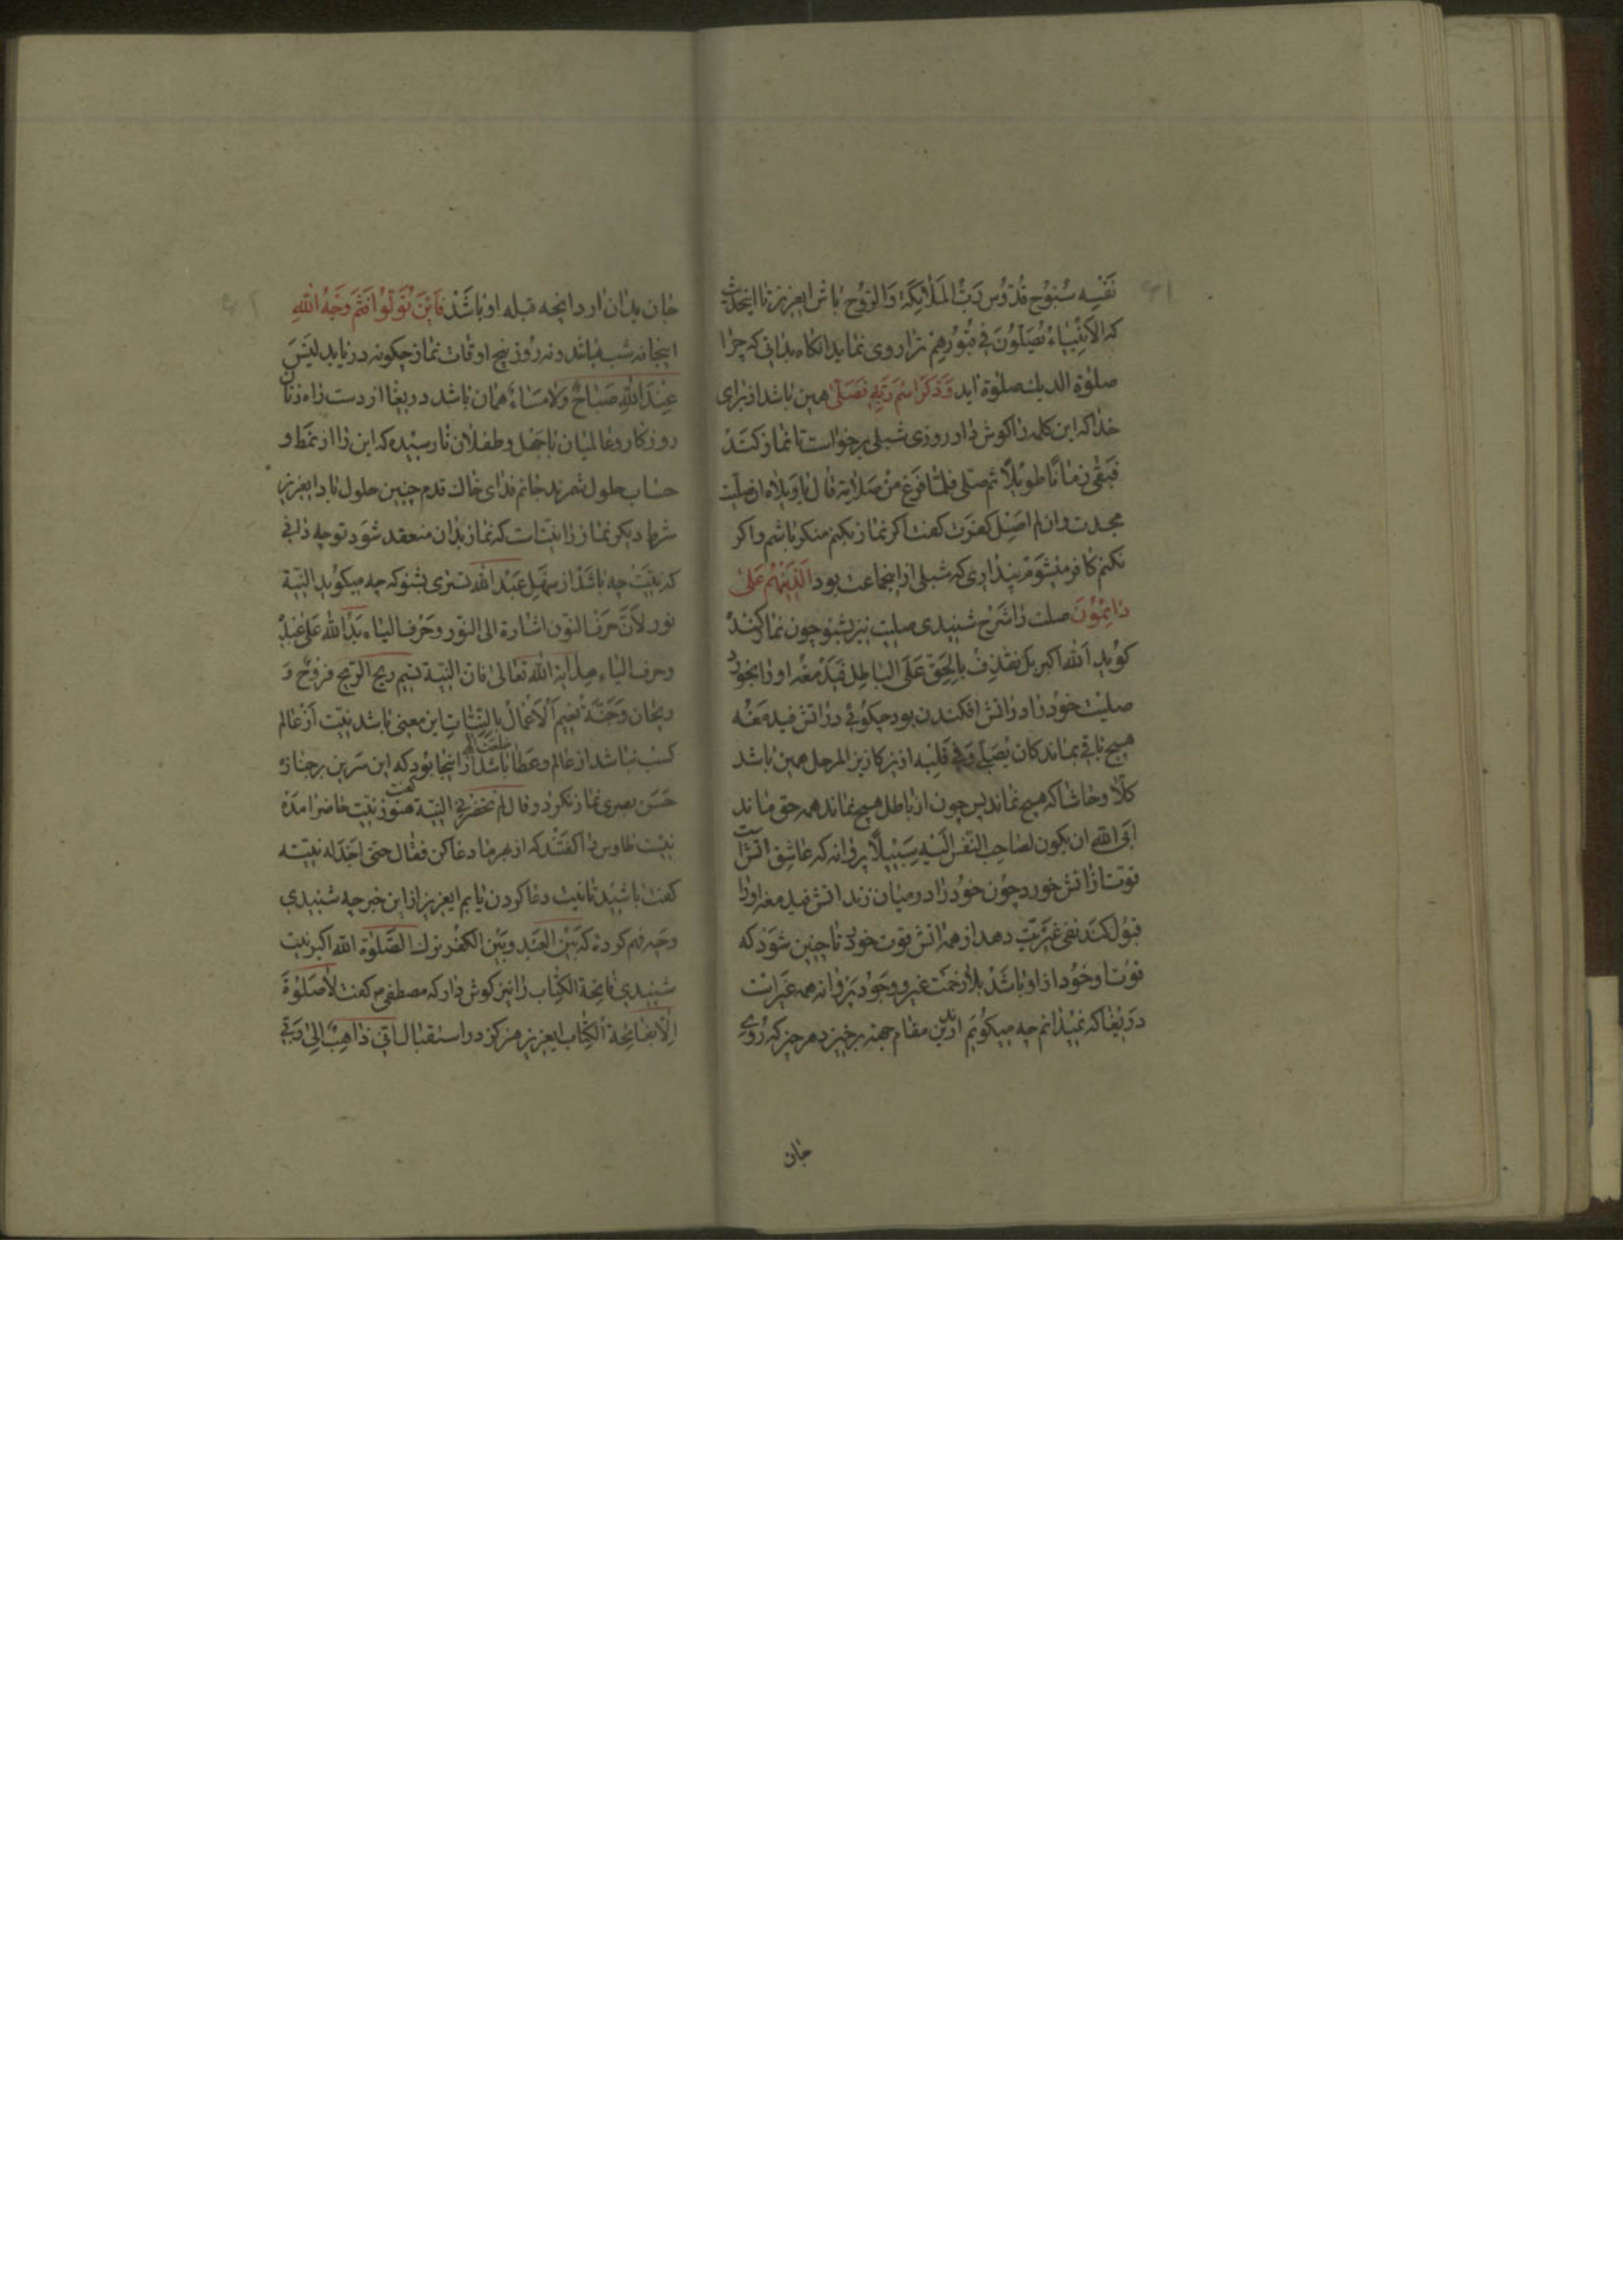 نَفْسِه سُبّوُح قُدّوُس رَبُّ المَلائِکَة وَالرّوُح باش ایعزیز تا اینحدیث
که الاَنْبِیاءُ یُصَلّوُنَ فی قُبوُرِهِمْ ترا روی نماید انکاه بدانی که چرا
صلوٰة الدیک صلوٰة اید وَذَکَرَ اسْمَ رَبِّهِ فَصَلّیٰ همین باشد از برای
خدا که این کلمه را کوش دار روزی شبلی برخواست تا نماز کُنَد
فَبَقی زمانًا طویلًا ثم صلی فلمّا فَرَغ مِنْ صَلاتِه قال یا وَیلاه ان صلیّت
جحدت وان لم اصَلِّ کفرَت کفت اکر نماز بکنم منکر باشم و اکر
نکنم کافر میشَوَم پنداری که شبلی ازینجماعت بود الَّذینَهُمْ عَلیٰ
دائِمُوُنَ صلت را شرح شنیدی صلیت نیز بشنو چون نما کند
کوید اَلله اکبر بل نقذِفُ بِالحَقِّ عَلَی الباطِلِ فَیَدْمَغُه او را بخود
صلیت خوُد را در اتش افکندن بود چکوئی در اتش فیدمَغُه
هیچ باقی بماند کان یُصَلّی وَفی قَلْبِه ازیز کازیز المرجل همین باشد
کلّا وحاشا که هیچ نماند پس چون از باطل هیچ نماند همه حق ماند
ابَی الله ان یکون لصاحب النفس الَیْهِ سَبیلًا پروانه که عاشق اتش است
قوت از اتش خورد چوُن خوُد را در میان زند اتش فیدمغه او را
قبوُل کند نفی غیرَیّت دهد از همه اتش قوت خود تا چنین شوَد که
قوُت او خوُد از او باشَدْ بلا زحمَت غیر و وجوُد پَروانه همه غیَرات
دریغا که نمیدانم چه میکویَم ازین مقام جهة برخیزد هر چیز که روی
جان
جان بدان ارد انچه قبله او باشَدْ فَاَیْنَ تُوَلّوُا فَثَمَّ وَجْهُ اللهِ
اینجا نه شب باشد و نه روُز پنج اوقات نماز چکونه دریابد لَیْسَ
عِنْدَ اللهِ صَباحٌ وَلا مَسَاءٌ همان باشد دریغا از دست راه زنان
روزکار و عالمیان با جَهل و طفلان نا رسیده که این را از نمَط و
حساب حلول شمرند جانم فدای خاك قدم چنین حلول باد ایعزیز
شرط دیکر نماز را نیّت است که نماز بدان منعقد شوَد تو چه دانی
که نیّت چه باشَدْ از سهل عَبْد الله تستری بشنو که چه میکوید النیّة
نور لاَنَّ حَرفَ النوّن اشارة الی النوّر وحَرْف الیاء یَدُ اللهِ عَلی عَبْدِ
وحرف الیاء هِدایة الله تعالیٰ فان النیة نسیم ریح الریح فرَوْحٌ وَ
ریحان وَجَنّةُ نعَیم اَلاَعْمالُ بالنیّاتِ این معنی باشد نیّت اَزعالم
کسْب نباشد از عالم وعطا باشد از اینجا بوُد که ابن سَرین بر جنازه
حَسَن بصری نماز نکرد و قال لم تحضر فی النیّة کفت هنوز نیّت حاضر نامَدَهُ
نیّت طاوس را کفتند که از بهر ما دعا کن فقال حتی اجَدَ له نیّته
کفت باشید تا نیت دعا کردن یابم ایعزیز از این خبر چه شنیدی
وچه فهم کرده که بَیْنَ العَبْد وبَیْن الکفْر ترك الصّلوٰة الله اکبر نیت
شنیدی فاتحة الکتاب را نیز کوش دار که مصطفی ص کفت لاٰ صَلوٰة
اِلّا بِفاتِحَةِ الکِتٰاب ایعزیز هرکز در استقبال انّی ذاهِبٌ اِلیٰ رَبّی